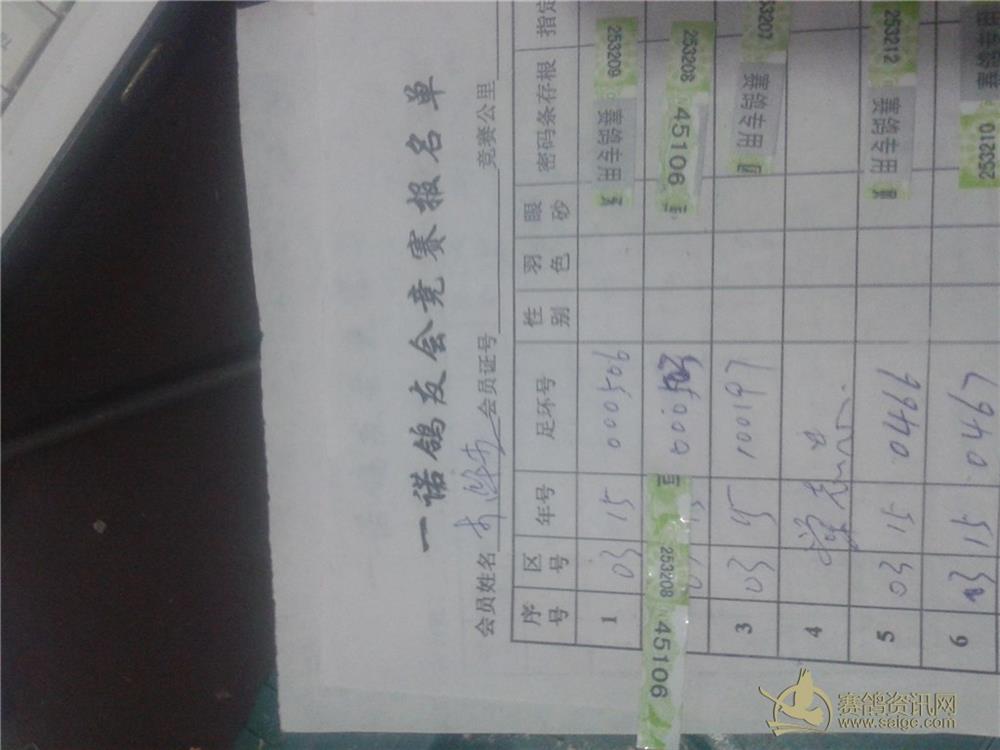 一诺鸽友会竞赛报名单
会员姓名 会员证号 竞赛公里
序号 区号 年号 足环号 性别 羽色 眼砂 密码条存根 指定
1 03 15 000506 253209 赛鸽专用
253208 45106 253208 45106
3 03 15 100197 253207 赛鸽专用
4
5 03 15 0466 253212 赛鸽专用
6 03 15 0467 253210
赛鸽资讯网
www.saigc.com